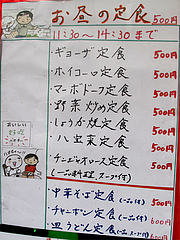 お昼の定食500円
11:30～14:30まで
・ギョーザ定食 500円
・ホイコーロ定食 500円
・マーボドーフ定食 500円
・野菜炒め定食 500円
・しょうが焼定食 500円
・八宝菜定食 500円
・チンジャオロース定食 500円
(一品料理、スープ付)
中華そば定食(一品付) 500円
・チャンポン定食(一品付) 600円
・皿うどん定食(一品、スープ付) 600円
おいしい